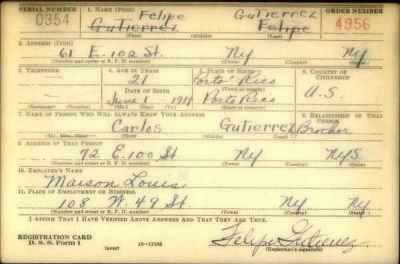 SERIAL NUMBER 1. NAME (Print) ORDER NUMBER
0354 Felipe Gutierrez 4956
Gutierrez Felipe
(First) (Middle) (Last)
2. ADDRESS (Print)
61 E. 102 St. Ny Ny
(Number and street or R. F. D. number) (Town) (County) (State)
3. TELEPHONE 4. AGE IN YEARS 5. PLACE OF BIRTH 6. COUNTRY OF CITIZENSHIP
21 Porto Rico
DATE OF BIRTH (Town or county) U.S.
June 1 1919 Porto Rico
(Exchange) (No.) (Mo.) (Day) (Yr.) (State or country)
7. NAME OF PERSON WHO WILL ALWAYS KNOW YOUR ADDRESS 8. RELATIONSHIP OF THAT PERSON
Carlos Gutierrez Brother
(Mr., Mrs., Miss) (First) (Middle) (Last)
9. ADDRESS OF THAT PERSON
72 E. 100 St Ny NyS.
(Number and street or R. F. D. number) (Town) (County) (State)
10. EMPLOYER'S NAME
Maison Louis
11. PLACE OF EMPLOYMENT OR BUSINESS
108 W. 49 St Ny Ny
(Number and street or R. F. D. number) (Town) (County) (State)
I AFFIRM THAT I HAVE VERIFIED ABOVE ANSWERS AND THAT THEY ARE TRUE.
REGISTRATION CARD
D. S. S. Form 1 16-17105 Felipe Gutierrez
(Registrant's signature)